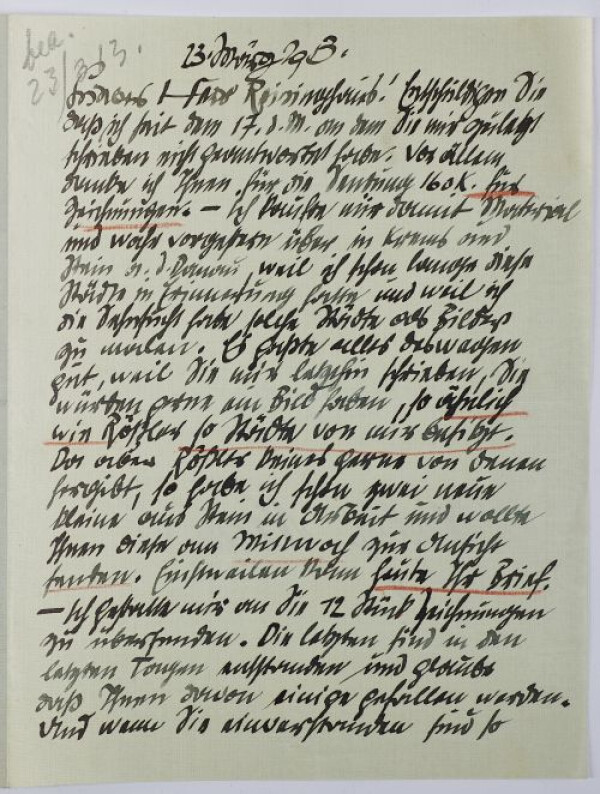 bea.
23/3 13.
23. März 1913.
Lieber Herr Reininghaus! Entschuldigen Sie
daß ich seit dem 17. d. M. an dem Sie mir zuletzt
schrieben nicht geantwortet habe. Vor Allem
danke ich Ihnen für die Sendung 160 K. für
Zeichnungen. – Ich kaufte mir damit Material
und wahr vorgestern über in Krems und
Stein a. d. Donau, weil ich schon lange diese
Städte in Erinnerung hatte und weil ich
die Sehnsucht habe solche Städte als Bilder
zu malen. Es paßte alles deswegen
gut, weil Sie mir letzthin schrieben, Sie
würden gerne ein Bild haben, so ähnlich
wie Rößler so Städte von mir besitzt.
Da aber Rößler keines gerne von denen
hergibt, so habe ich schon zwei neue
kleine aus Stein in Arbeit und wollte
Ihnen diese am Mittwoch zur Ansicht
senden. Einstweilen kam heute Ihr Brief.
– Ich gestatte mir an Sie 12 Stück Zeichnungen
zu übersenden. Die letzten sind in den
letzten Tagen entstanden und glaube
daß Ihnen davon einige gefallen werden.
Und wenn Sie einverstanden sind so